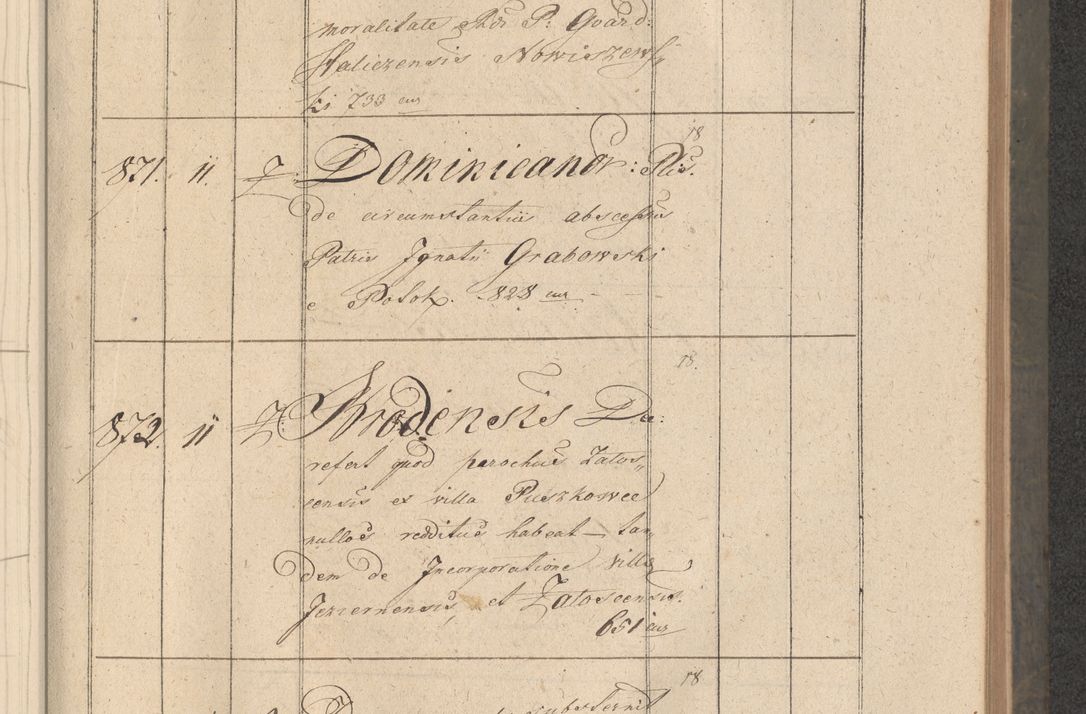 moralitate P. Gvard:
Haliczensis Nowiszews„
ki 733 cur
18
871. 11. 7. Dominicanor: Plis.
de circumstantiis abscessus
Patris Ignatii Grabowski
e Polok. 828 cur
18.
872. 11 Z: Brodensis De:
refert quod parochus Zalos„
censis ex villa Puszkowce
nullos redditus habeat – tan„
dem de Incorporatione villa
Jeziernensis, et Zaloscensis.
651 cur
18